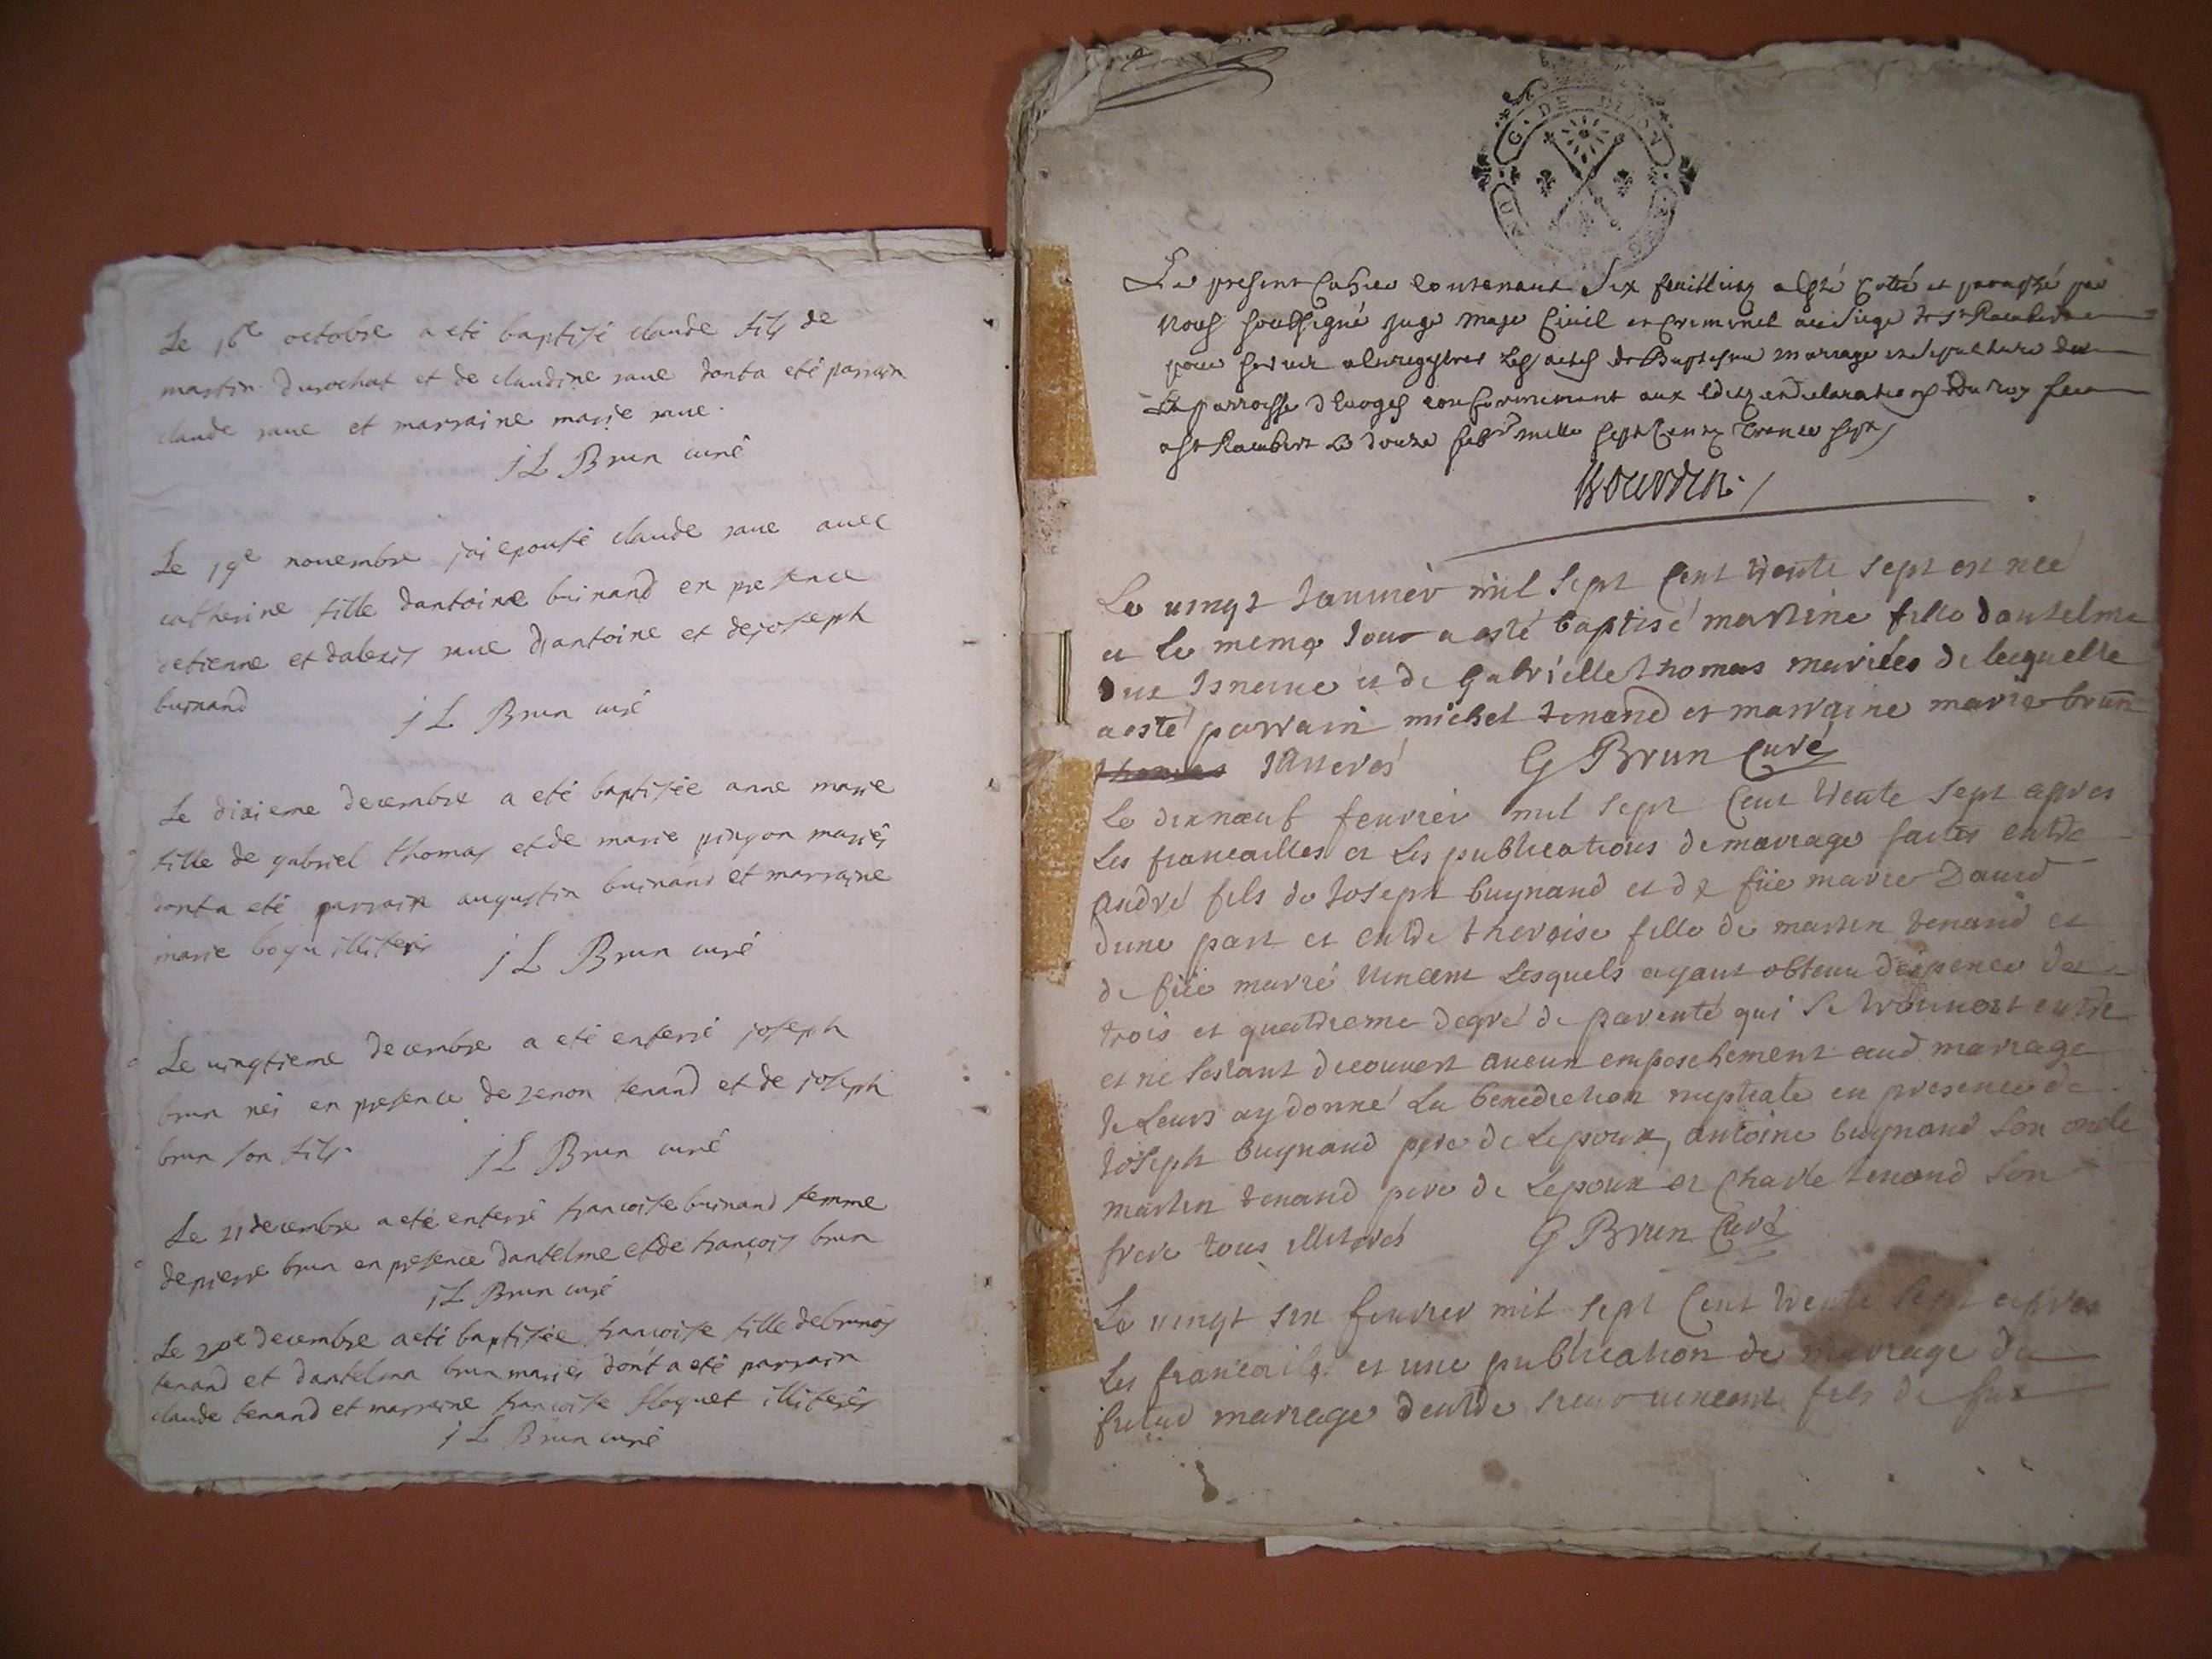 Le 16e octobre a eté baptisé claude fils de
martin durochat et de claudine raue dont a eté parrain
claude raue et marraine marie raue.
j L Brun curé
Le 19e nouembre jai epousé claude raue auec
catherine fille dantoine buinand en presence
detienne et dalexis raue dantoine et dejoseph
buinand
j L Brun curé
Le dixieme decembre a eté baptisée anne marie
fille de gabriel thomas et de marie pingon mariés
dont a eté parrain augustin buinand et marraine
marie boyu illiterés
j L Brun curé
Le uingtieme decembre a eté enterré joseph
brun nei en presence de zenon tenand et de joseph
brun son fils.
j L Brun curé
Le 21 decembre a eté enterré francoise buinand femme
de pierre brun en presence dantelme et de françois brun
j L Brun curé
Le decembre a eté baptisée francoise fille de
tenand et dantelma brun mariés dont a eté parrain
claude tenand et marraine francoise floquet illiterés
j L Brun curé
G. DE DIJON
Le present Cahier contenant six feuilletz a esté Cotté et paraphé par
Nous soubsigné Juge Maje Ciuil et Criminel au siege de St Rambert
pour seruir a enregistrer les actes de Baptesme Mariage et sepulture de
la parroisse d'Euoges conformement aux editz et declarations du roy fait
a St Rambert le douze mille sept Centz trente sept
Le uingt Januier mil sept Cent trente sept est neé
et le meme Jour a esté baptisé martine fille dantelme
et de Gabrielle thomas mariées de lequelle
a esté parrain michel tenand et marraine marie brun
thomas
G Brun Curé
Le dixneuf feurier mil sept Cent trente sept apres
Les fiancailles et Les publications de mariage faites entre
André fils de Joseph buynand et de füe marie Dauid
dune part et entre theroise fille de martin tenand et
de füe marie uincent Lesquels ayant obtenu dispence de
trois et quatrieme degré de parenté qui se trouuoit entre
et ne sestant decouuert aucun empeschement aud mariage
Je Leurs ay donné La benediction nuptiale en presence de
Joseph buynand pere de Lepoux, antoine buynand son oncle
martin tenand pere de Lepoux et Charle tenand son
frere tous illiterés
G Brun Curé
Le uingt six feurier mil sept Cent trente sept apres
Les fiancailes et une publication de mariage du
futur mariage dentre uincent fils de